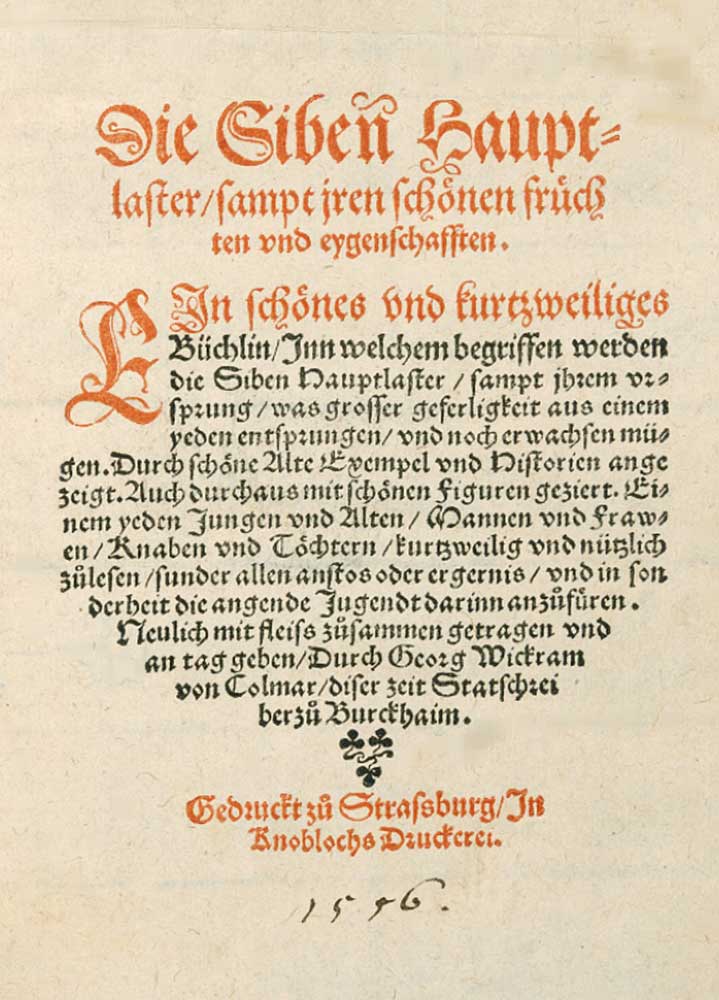 Die Sibeñ Haupt⸗
laster/sampt jren schoͤnen fruͤch
ten vnd eygenschafften.
EIn schoͤnes vnd kurtzweiliges
Büchlin/Inn welchem begriffen werden
die Siben Hauptlaster / sampt jhrem vr⸗
sprung/was grosser geferligkeit aus einem
yeden entsprungen/ vnd noch erwachsen muͤ⸗
gen. Durch schoͤne Alte Exempel vnd Historien ange
zeigt. Auch durchaus mit schoͤnen Figuren geziert. Ei⸗
nem yeden Jungen vnd Alten / Mannen vnd Fraw⸗
en / Knaben vnd Toͤchtern /kurtzweilig vnd nützlich
zuͦlesen /sunder allen anstos oder ergernis/ vnd in son
derheit die angende Jugendt darinn anzuͦfüren.
Neulich mit fleiss zuͦsammen getragen vnd
an tag geben/Durch Georg Wickram
von Colmar/diser zeit Statschrei
ber zuͦ Burckhaim.
Gedruckt zuͦ Strassburg/In
Knoblochs Druckerei.
1556.